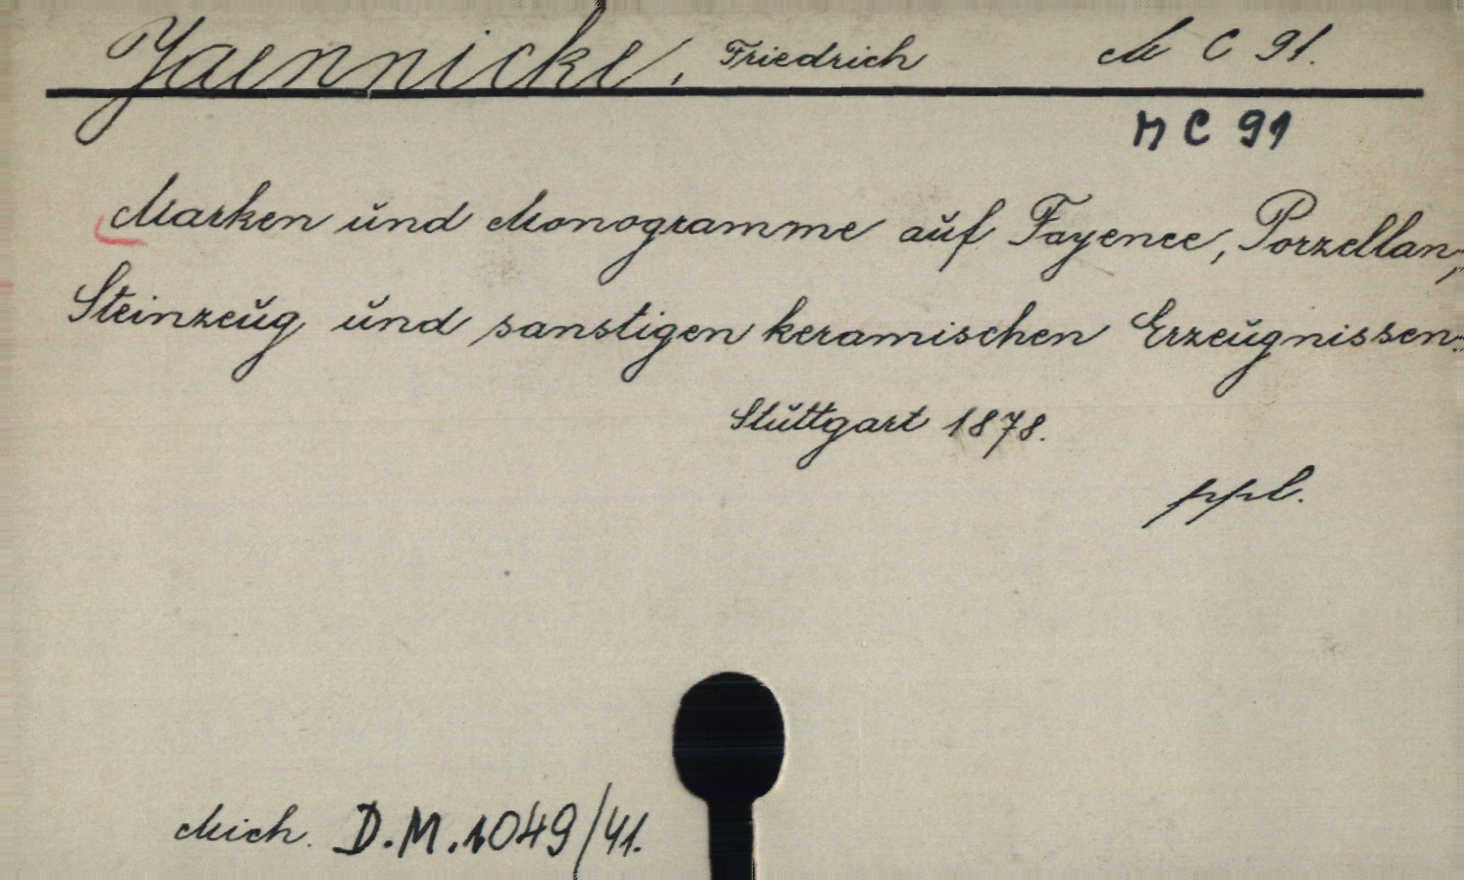 Jaennicke, Friedrich M C 91.
M C 91
Marken und Monogramme auf Fayence, Porzellan,
Steinzeug und sanstigen keramischen Erzeugnissen.
Stuttgart 1878.
ppl.
Mich. D.M.1049/41.